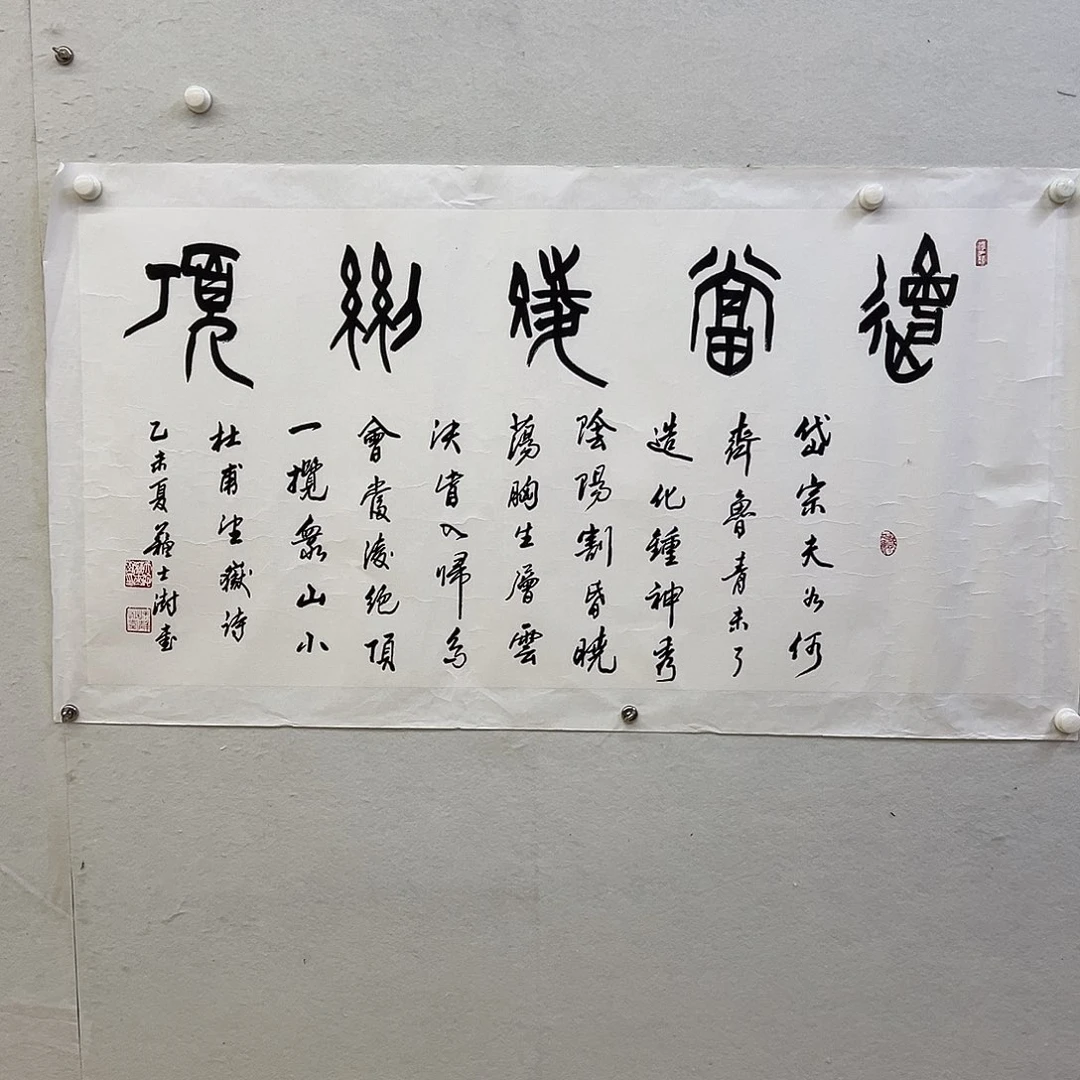 會當凌絕頂
岱宗夫如何
齊魯青未了
造化鍾神秀
陰陽割昏曉
蕩胸生層雲
決眥入歸鳥
會當凌絕頂
一攬眾山小
杜甫望嶽詩
乙未夏蘇士澍書